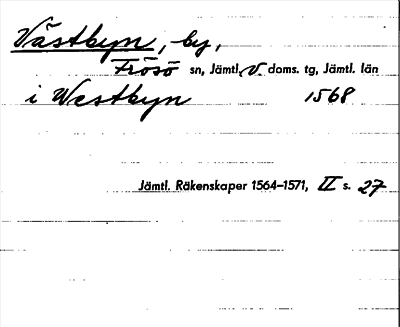 Västbyn, by,
Frösö sn, Jämtl. V. doms. tg, Jämtl. län
i Westbyn 1568
Jämtl. Räkenskaper 1564–1571, II s. 27